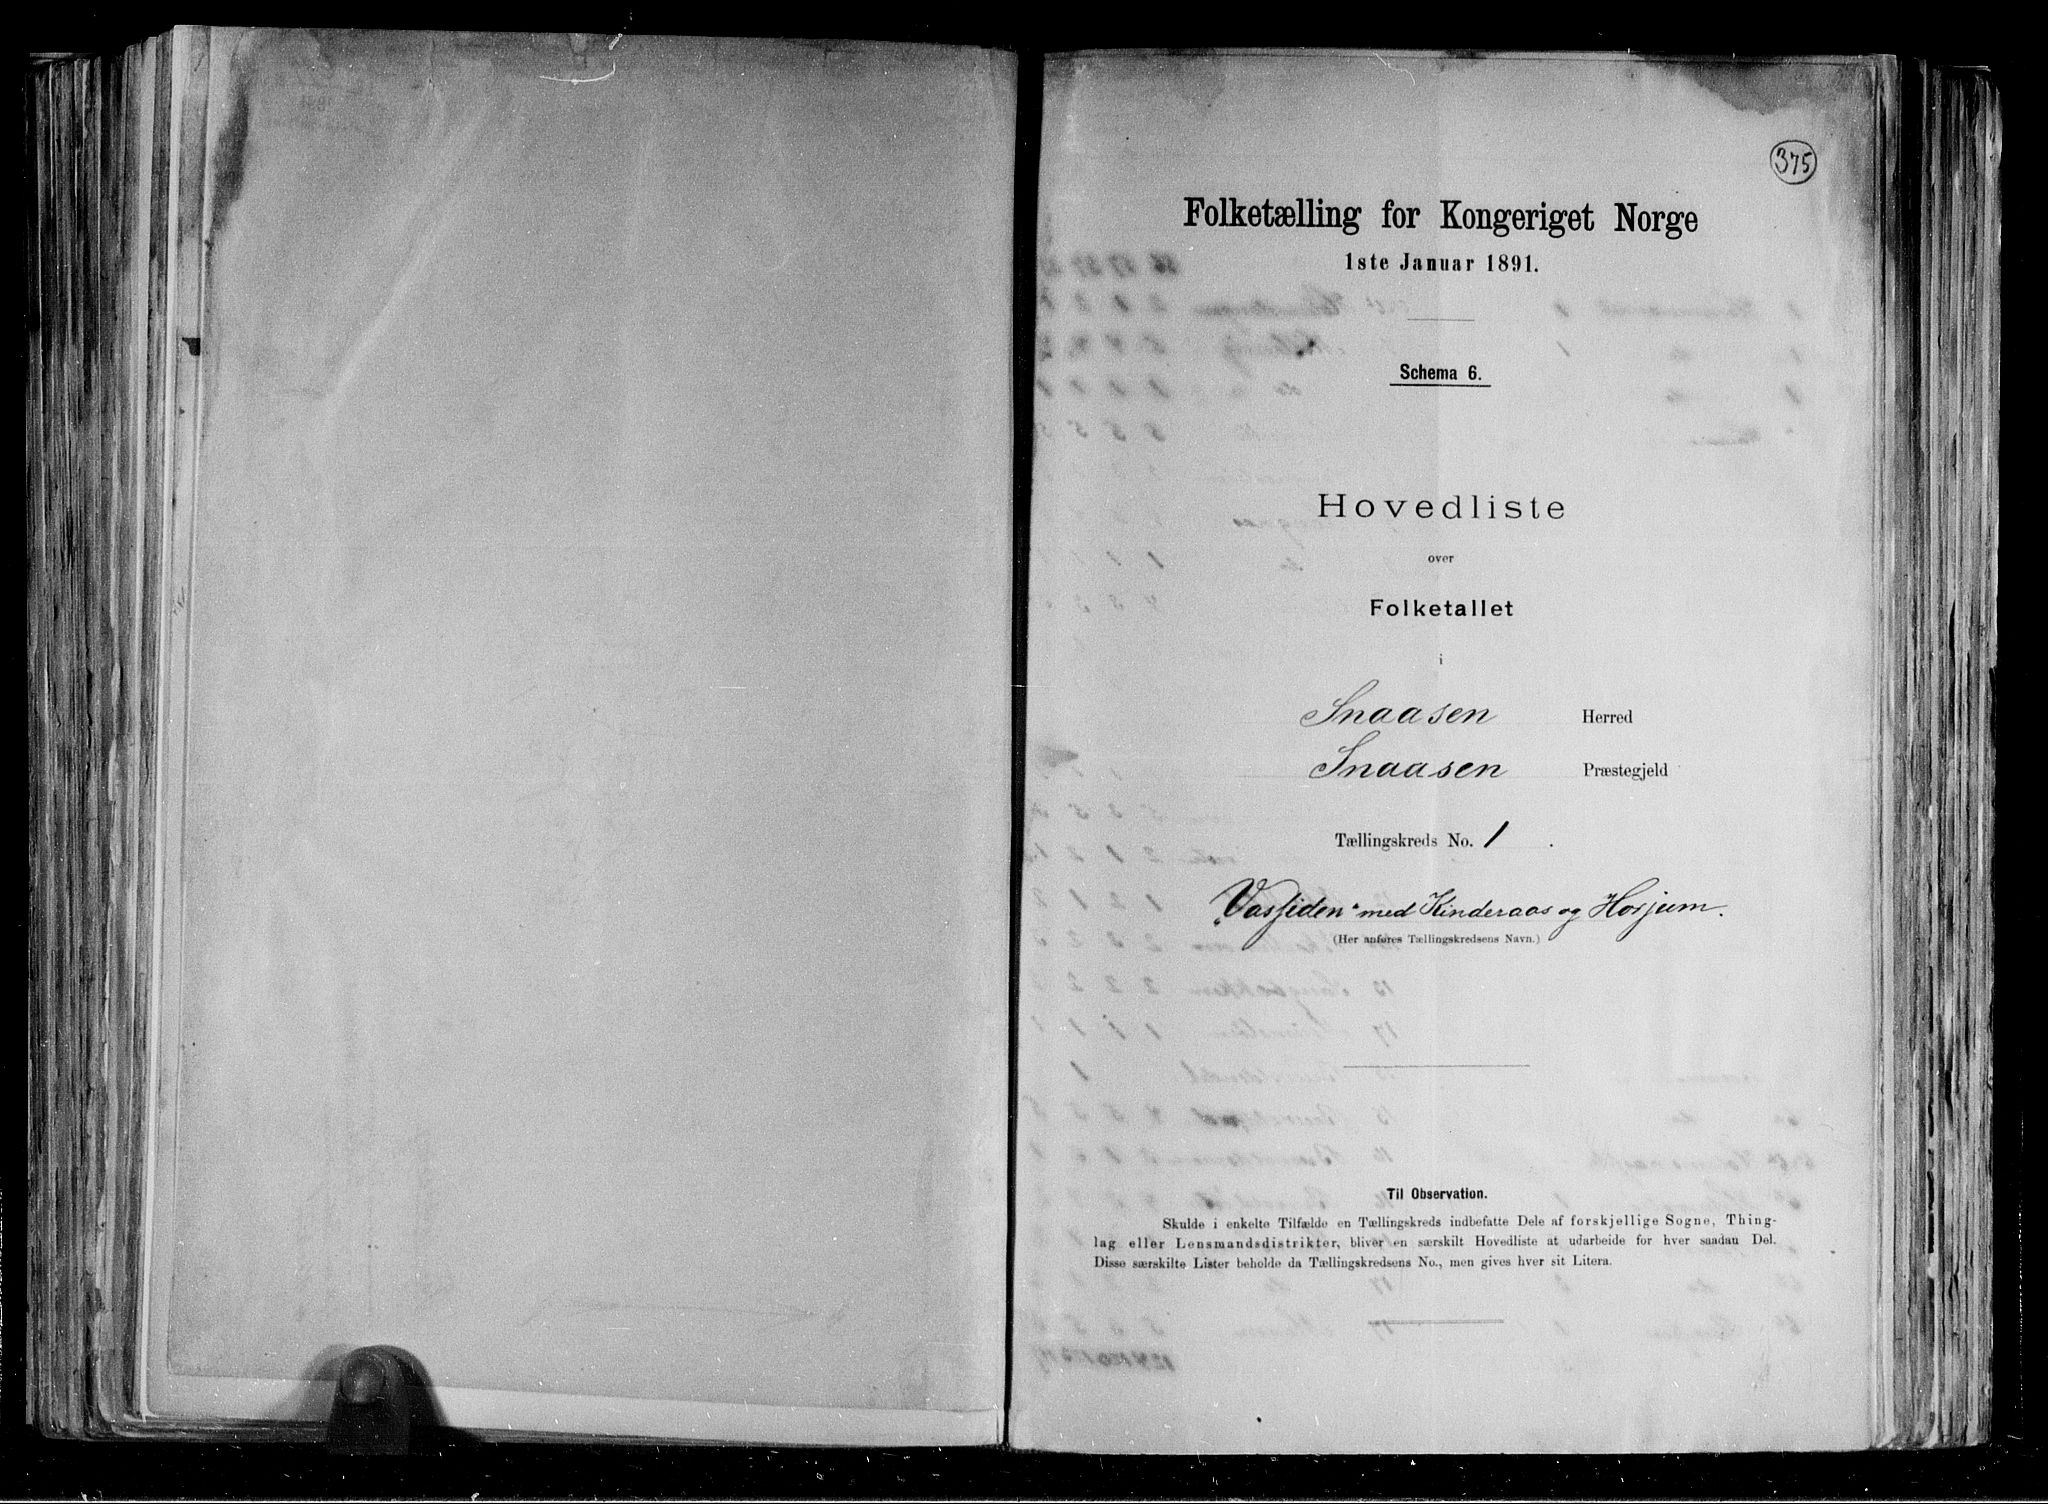 375
Folketælling for Kongeriget Norge
1ste Januar 1891.
Schema 6.
Hovedliste
over
Folketallet
i
Snaasen Herred
Snaasen Præstegjeld
Tællingskreds No. 1.
"Vassiden" med Kinderaas og Horjem.
(Her anføres Tællingskredsens Navn.)
Til Observation.
Skulde i enkelte Tilfælde en Tællingskreds indbefatte Dele af forskjellige Sogne, Thing-
lag eller Lensmandsdistrikter, bliver en særskilt Hovedliste at udarbeide for hver saadan Del.
Disse særskilte Lister beholde da Tællingskredsens No., men gives hver sit Litera.